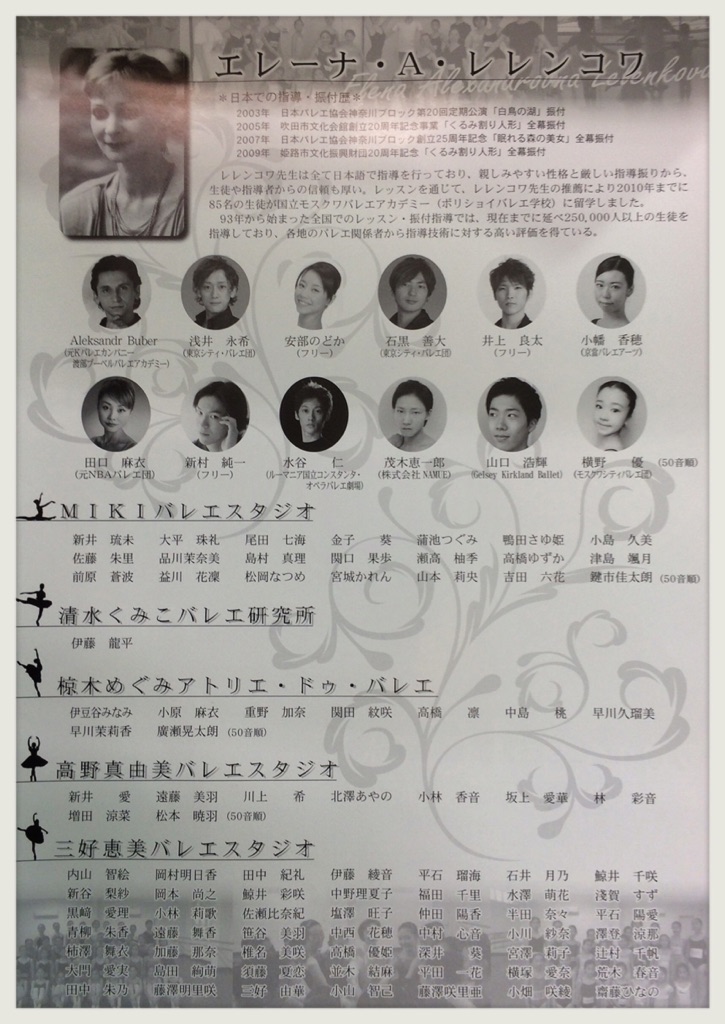 エレーナ・A・レレンコワ
Elena Alexandrovna Lelenkova
＊日本での指導・振付歴＊
2003年　日本バレエ協会神奈川ブロック第20回定期公演「白鳥の湖」振付
2005年　吹田市文化会館創立20周年記念事業「くるみ割り人形」全幕振付
2007年　日本バレエ協会神奈川ブロック創立25周年記念「眠れる森の美女」全幕振付
2009年　姫路市文化振興財団20周年記念「くるみ割り人形」全幕振付
レレンコワ先生は全て日本語で指導を行っており、親しみやすい性格と厳しい指導振りから、
生徒や指導者からの信頼も厚い。レッスンを通じて、レレンコワ先生の推薦により2010年までに
85名の生徒が国立モスクワバレエアカデミー（ボリショイバレエ学校）に留学しました。
93年から始まった全国でのレッスン・振付指導では、現在までに延べ250,000人以上の生徒を
指導しており、各地のバレエ関係者から指導技術に対する高い評価を得ている。
Aleksandr Buber　浅井　永希　安部のどか　石黒　善大　井上　良太　小幡　香穂
（元Kバレエカンパニー　（東京シティ・バレエ団）　（フリー）　（東京シティ・バレエ団）　（フリー）　（京當バレエアーツ）
渡部ブーベルバレエアカデミー）
田口　麻衣　新村　純一　水谷　仁　茂木恵一郎　山口　浩輝　横野　優　（50音順）
（元NBAバレエ団）　（フリー）　（ルーマニア国立コンスタンタ・　（株式会社NAMUE）　（Gelsey Kirkland Ballet）　（モスクワシティバレエ団）
オペラバレエ劇場）
MIKIバレエスタジオ
新井　琉未　大平　珠礼　尾田　七海　金子　葵　蒲池つぐみ　鴨田さゆ姫　小島　久美
佐藤　朱里　品川茉奈美　島村　真理　関口　果歩　瀬高　柚季　高橋ゆずか　津島　颯月
前原　蒼波　益川　花凜　松岡なつめ　宮城かれん　山本　莉央　吉田　六花　鍵市佳太朗　（50音順）
清水くみこバレエ研究所
伊藤　龍平
椋木めぐみアトリエ・ドゥ・バレエ
伊豆谷みなみ　小原　麻衣　重野　加奈　関田　紋咲　高橋　凛　中島　桃　早川久瑠美
早川茉莉香　廣瀬晃太朗　（50音順）
高野真由美バレエスタジオ
新井　愛　遠藤　美羽　川上　希　北澤あやの　小林　香音　坂上　愛華　林　彩音
増田　涼菜　松本　暁羽　（50音順）
三好恵美バレエスタジオ
内山　智絵　岡村明日香　田中　紀礼　伊藤　綾音　平石　瑠海　石井　月乃　鯨井　千咲
新谷　梨紗　岡本　尚之　鯨井　彩咲　中野理夏子　福田　千里　水澤　萌花　淺賀　すず
黒﨑　愛理　小林　莉歌　佐瀬比奈紀　塩澤　旺子　仲田　陽香　半田　奈々　平石　陽愛
青柳　朱香　遠藤　舞香　笹谷　美羽　中西　花穂　中村　心音　小川　紗奈　澤登　涼那
柿澤　舞衣　加藤　那奈　椎名　美咲　高橋　優姫　深井　葵　宮澤　莉子　辻村　千帆
大門　愛実　島田　絢萌　須藤　夏恋　並木　結麻　平田　一花　横塚　愛奈　荒木　春音
田中　朱乃　藤澤明里咲　三好　由華　小山　智己　藤澤咲里亜　小畑　咲綾　齋藤ひなの